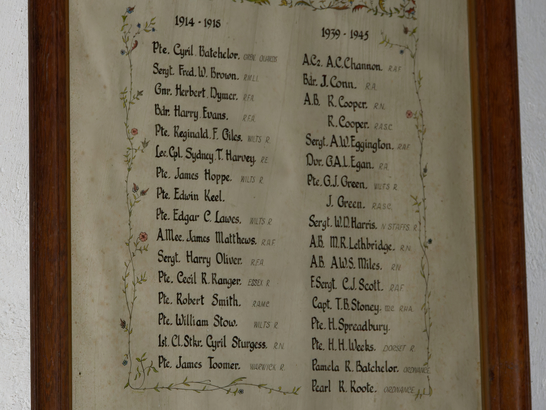 1914 - 1918
Pte. Cyril Batchelor.
Sergt. Fred. W. Brown. R.M.L.I.
Gnr. Herbert Dymer. R.F.A.
Bdr. Harry Evans. R.F.A.
Pte. Reginald. F. Giles. WILTS R.
Lce. Cpl. Sydney. T. Harvey. R.E.
Pte. James Hoppe. WILTS R.
Pte. Edwin Keel.
Pte. Edgar C. Lawes. WILTS R.
A.Mec. James Matthews. R.A.F.
Sergt. Harry Oliver. R.F.A.
Pte. Cecil R. Ranger. ESSEX R.
Pte. Robert Smith. R.A.M.C.
Pte. William Stow. WILTS R.
1st. Cl. Stkr. Cyril Sturgess. R.N.
Pte. James Toomer. WARWICK R.
1939 - 1945
A.C.2. A.C. Channon. R.A.F.
Bdr. J. Conn. R.A.
A.B. R. Cooper. R.N.
R. Cooper. R.A.S.C.
Sergt. A.W. Eggington. R.A.F.
Dvr. G.A.L. Egan. R.A.
Pte. G.J. Green. WILTS R.
J. Green. R.A.S.C.
Sergt. W.D. Harris. N STAFFS R.
A.B. M.R. Lethbridge. R.N.
A.B. A.W.S. Miles. R.N.
F. Sergt. C.J. Scott. R.A.F.
Capt. T.B. Stoney. R.H.A.
Pte. H. Spreadbury.
Pte. H.H. Weeks. DORSET R.
Pamela R. Batchelor. ORDNANCE
Pearl R. Roote. ORDNANCE